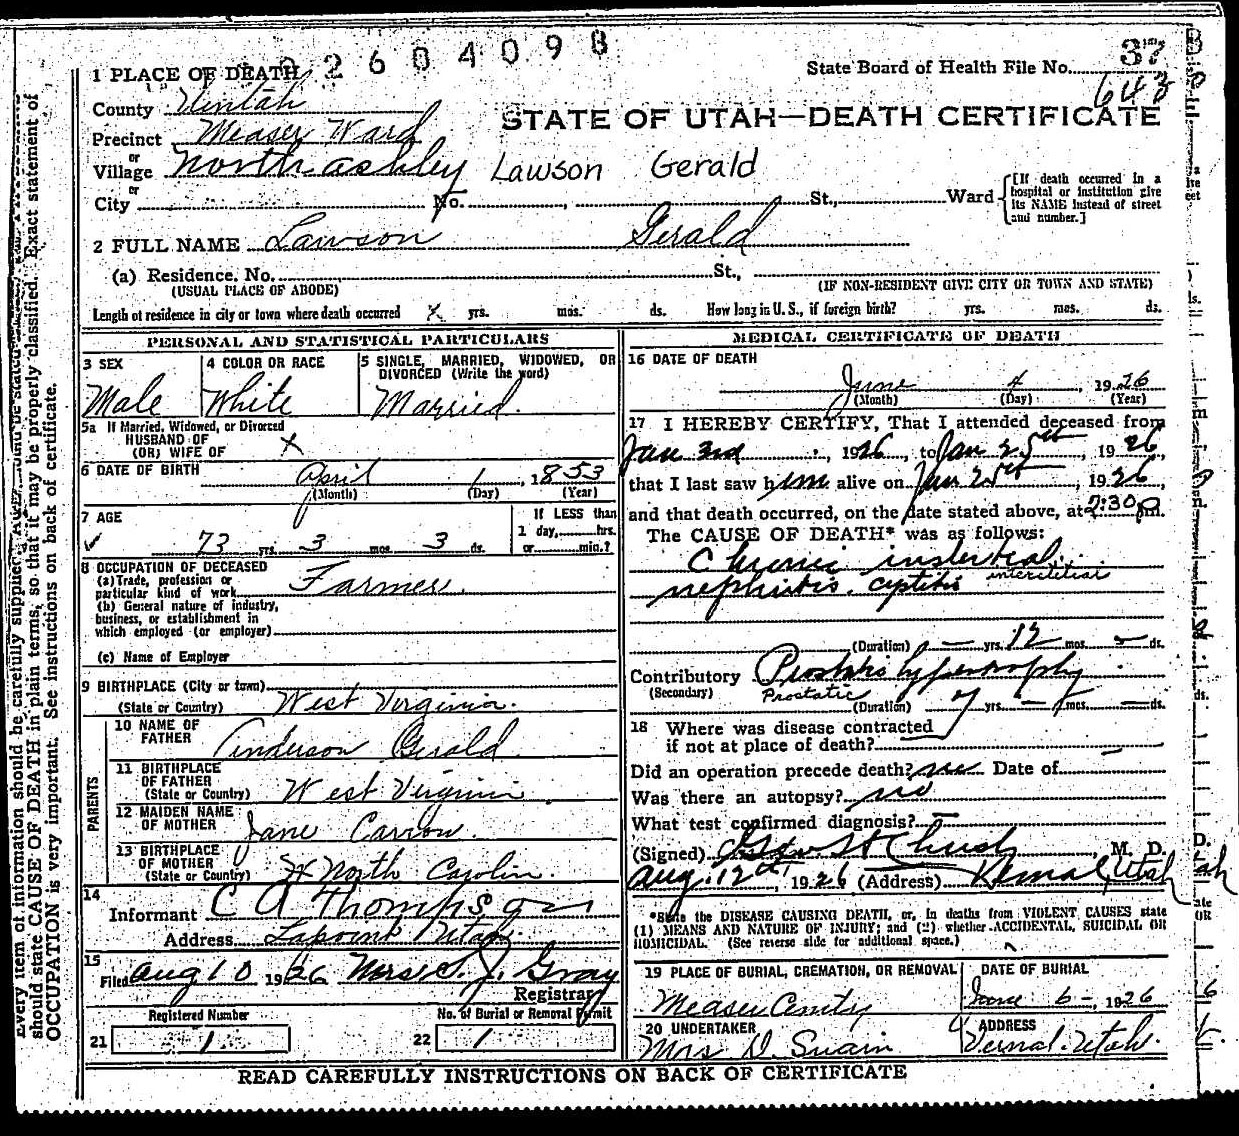 2604098
1 PLACE OF DEATH
State Board of Health File No. 37
643
County Uintah
STATE OF UTAH—DEATH CERTIFICATE
Precinct Measer Ward
or
Village North Ashley Lawson Gerald
or
City No. , St., Ward
[If death occurred in a hospital or institution give its NAME instead of street and number.]
2 FULL NAME Lawson Gerald
(a) Residence, No. St.,
(USUAL PLACE OF ABODE) (IF NON-RESIDENT GIVE CITY OR TOWN AND STATE)
Length of residence in city or town where death occurred X yrs. mos. ds. How long in U. S., if foreign birth? yrs. mos. ds.
PERSONAL AND STATISTICAL PARTICULARS
3 SEX
Male
4 COLOR OR RACE
White
5 SINGLE, MARRIED, WIDOWED, OR
DIVORCED (Write the word)
Married.
5a If Married, Widowed, or Divorced
HUSBAND OF
(OR) WIFE OF X
6 DATE OF BIRTH
April 1, 1853
(Month) (Day) (Year)
7 AGE
73 yrs. 3 mos. 3 ds.
If LESS than
1 day, hrs.
or min.?
8 OCCUPATION OF DECEASED
(a) Trade, profession or
particular kind of work Farmer.
(b) General nature of industry,
business, or establishment in
which employed (or employer)
(c) Name of Employer
9 BIRTHPLACE (City or town)
(State or Country) West Virginia.
PARENTS
10 NAME OF
FATHER Anderson Gerald
11 BIRTHPLACE
OF FATHER
(State or Country) West Virginia.
12 MAIDEN NAME
OF MOTHER Jane Carrow.
13 BIRTHPLACE
OF MOTHER
(State or Country) North Carolin.
14
Informant C A Thompson
Address Lapoint Utah.
15
Filed Aug 10 1926 Mrs. S. J. Gray
Registrar
Registered Number
21 1.
No. of Burial or Removal Permit
22 1
MEDICAL CERTIFICATE OF DEATH
16 DATE OF DEATH
June 4, 1926
(Month) (Day) (Year)
17 I HEREBY CERTIFY, That I attended deceased from
Jan 3rd, 1926, to Jan 25th 1926,
that I last saw him alive on Jan 25th, 1926,
and that death occurred, on the date stated above, at 2:30 p m.
The CAUSE OF DEATH* was as follows:
Chronic instertial.
nephritis. cystitis interstitial
(Duration) — yrs. 12 mos. — ds.
Contributory Prostatic hypertrophy
(Secondary) Prostatic
(Duration) yrs. — mos. — ds.
18 Where was disease contracted
if not at place of death? —
Did an operation precede death? no Date of
Was there an autopsy? no
What test confirmed diagnosis? —
(Signed) M. D.
Aug. 12th, 1926 (Address) Vernal, Utah
*State the DISEASE CAUSING DEATH, or, in deaths from VIOLENT CAUSES state
(1) MEANS AND NATURE OF INJURY; and (2) whether ACCIDENTAL, SUICIDAL OR
HOMICIDAL. (See reverse side for additional space.)
19 PLACE OF BURIAL, CREMATION, OR REMOVAL
Measer Cemtry
DATE OF BURIAL
June 6 -, 1926
20 UNDERTAKER
Mrs D. Swain
ADDRESS
Vernal. Utah.
READ CAREFULLY INSTRUCTIONS ON BACK OF CERTIFICATE
Every item of information should be carefully supplied.
should state CAUSE OF DEATH in plain terms, so that it may be properly classified. Exact statement of
OCCUPATION is very important. See instructions on back of certificate.